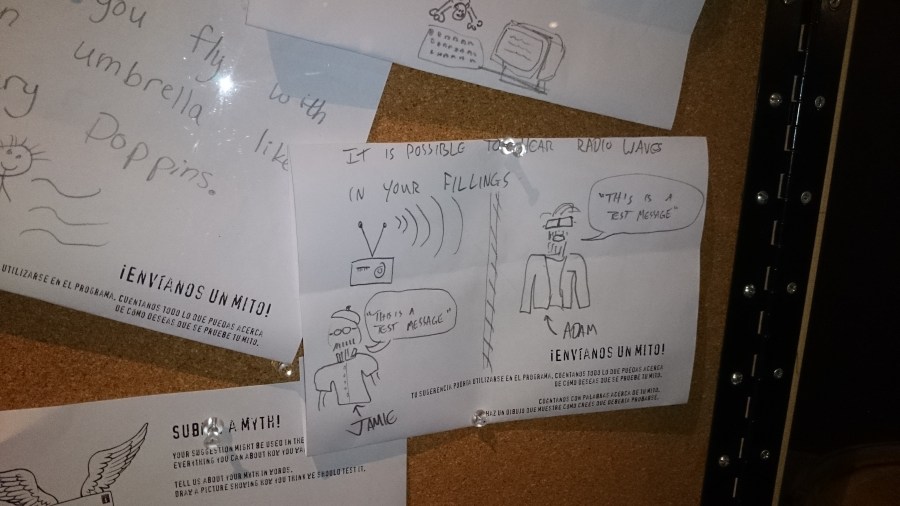 you fly with
umbrella like
Poppins.
¡ENVÍANOS UN MITO!
UTILIZARSE EN EL PROGRAMA, CUÉNTANOS TODO LO QUE PUEDAS ACERCA
DE CÓMO DESEAS QUE SE PRUEBE TU MITO.
IT IS POSSIBLE TO HEAR RADIO WAVES
IN YOUR FILLINGS
"THIS IS A
TEST MESSAGE"
JAMIE
"THIS IS A
TEST MESSAGE"
ADAM
¡ENVÍANOS UN MITO!
TU SUGERENCIA PODRÍA UTILIZARSE EN EL PROGRAMA, CUÉNTANOS TODO LO QUE PUEDAS ACERCA
DE CÓMO DESEAS QUE SE PRUEBE TU MITO.
CUÉNTANOS CON PALABRAS ACERCA DE TU MITO.
HAZ UN DIBUJO QUE MUESTRE CÓMO CREES QUE DEBERÍA PROBARSE.
SUBMIT A MYTH!
YOUR SUGGESTION MIGHT BE USED IN THE
EVERYTHING YOU CAN ABOUT HOW YOU
TELL US ABOUT YOUR MYTH IN WORDS.
DRAW A PICTURE SHOWING HOW YOU THINK WE SHOULD TEST IT.